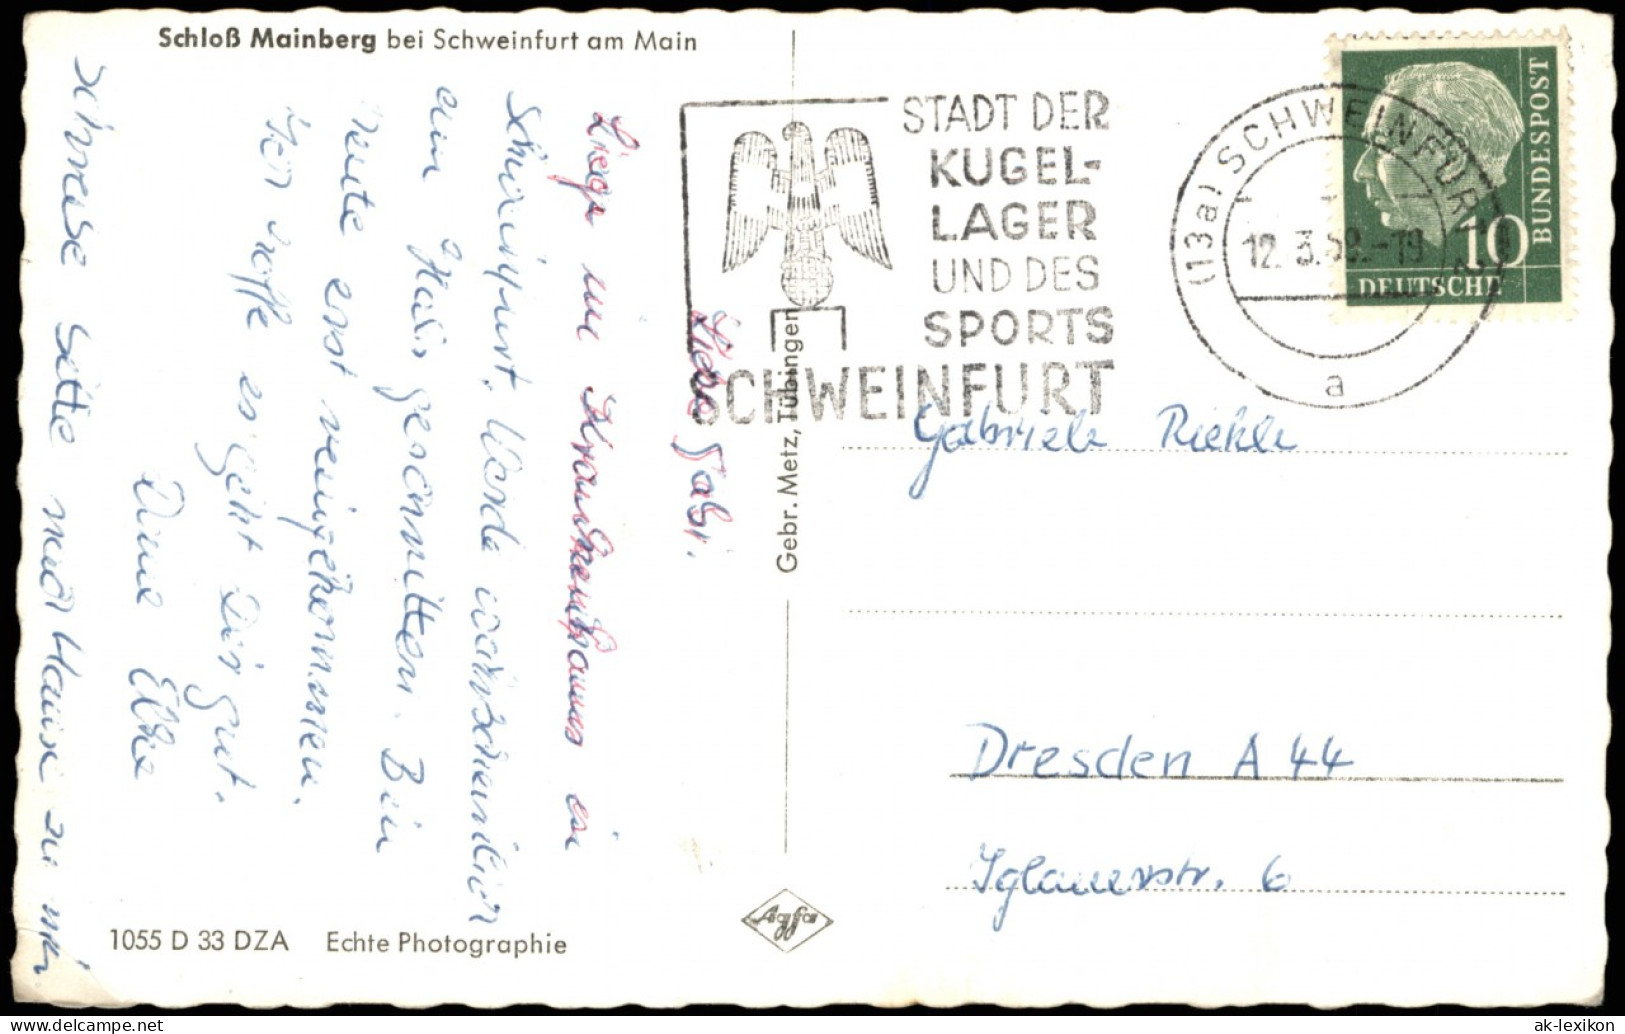 Schloß Mainberg bei Schweinfurt am Main
STADT DER
KUGEL-
LAGER
UND DES
SPORTS
SCHWEINFURT
(13a) SCHWEINFURT 2
12. 3. -19
a
BUNDESPOST
10
DEUTSCHE
Gebr. Metz, Tübingen
Liebe Gabi.
Liege im Krankenhaus in
Schweinfurt. Werde wahrscheinlich
am Hals geschnitten. Bin
heute erst reingekommen.
Ich hoffe es geht Dir gut.
Deine Elke
schreibe bitte nach Hause zu mir
Gabriele Riehle
Dresden A 44
Iglauerstr. 6
1055 D 33 DZA Echte Photographie
Agfa
ak-lexikon